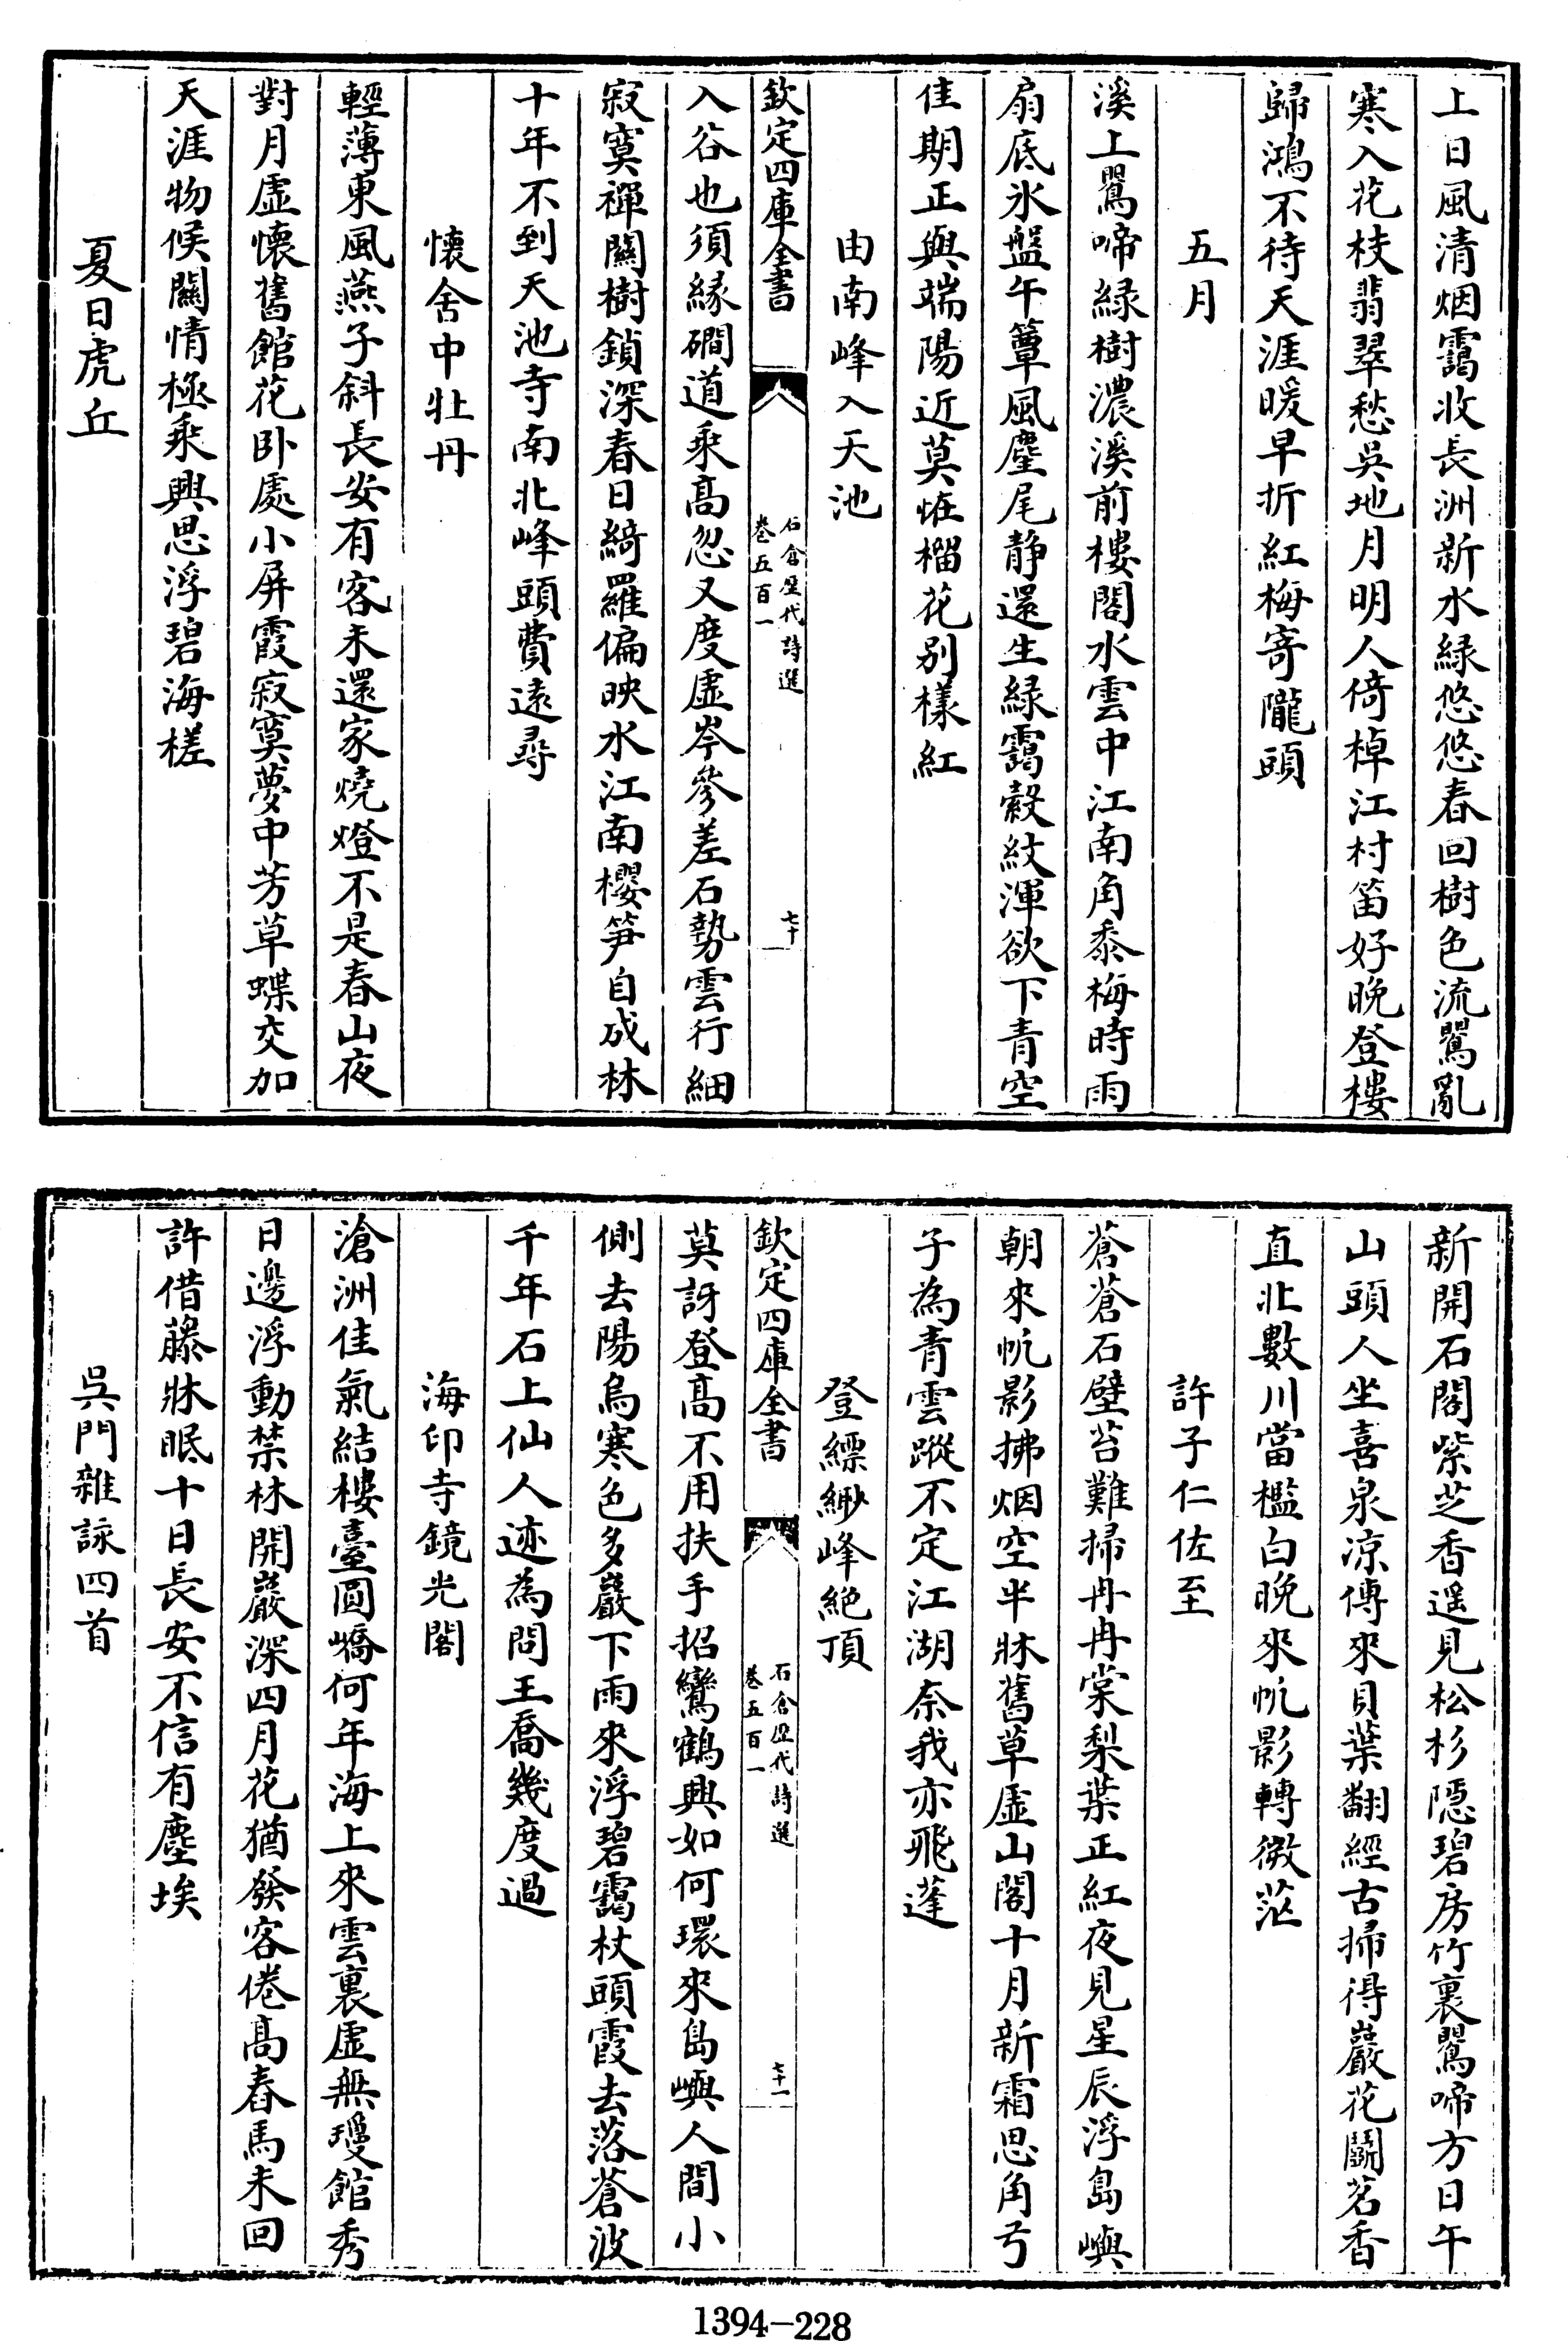 上日風清烟靄收長洲新水緑悠悠春回樹色流鶯亂
寒入花枝翡翠愁吳地月明人倚棹江村笛好晚登樓
歸鴻不待天涯暖早折紅梅寄隴頭
五月
溪上鶯啼緑樹濃溪前樓閣水雲中江南角黍梅時雨
扇底氷盤午簟風麈尾静還生緑靄縠紋渾欲下青空
佳期正與端陽近莫恠榴花别樣紅
由南峰入天池
欽定四庫全書
石倉歴代詩選
卷五百一
七十
入谷也須緣磵道乘髙忽又度虚岑參差石勢雲行細
寂寞禪闗樹鎖深春日綺羅偏映水江南櫻笋自成林
十年不到天池寺南北峰頭費逺尋
懷舍中牡丹
輕薄東風燕子斜長安有客未還家燒燈不是春山夜
對月虚懷舊館花卧處小屏霞寂寞夢中芳草蝶交加
天涯物候闗情極乘興思浮碧海槎
夏日虎丘
新開石閣紫芝香遥見松杉隠碧房竹裏鶯啼方日午
山頭人坐喜泉凉傳來貝葉翻經古掃得巖花鬭茗香
直北數川當檻白晚來帆影轉微茫
許子仁佐至
蒼蒼石壁苔難掃冉冉棠梨葉正紅夜見星辰浮島嶼
朝來帆影拂烟空半牀舊草虚山閣十月新霜思角弓
子為青雲蹤不定江湖奈我亦飛蓬
登縹緲峰絶頂
欽定四庫全書
石倉歴代詩選
卷五百一
七十一
莫訝登髙不用扶手招鸞鶴興如何環來島嶼人間小
側去陽烏寒色多巖下雨來浮碧靄杖頭霞去落蒼波
千年石上仙人迹為問王喬幾度過
海印寺鏡光閣
滄洲佳氣結樓臺圓嶠何年海上來雲裏虚無瓊館秀
日邊浮動禁林開巖深四月花猶發客倦髙春馬未回
許借藤牀眠十日長安不信有塵埃
吳門雜詠四首
1394-228